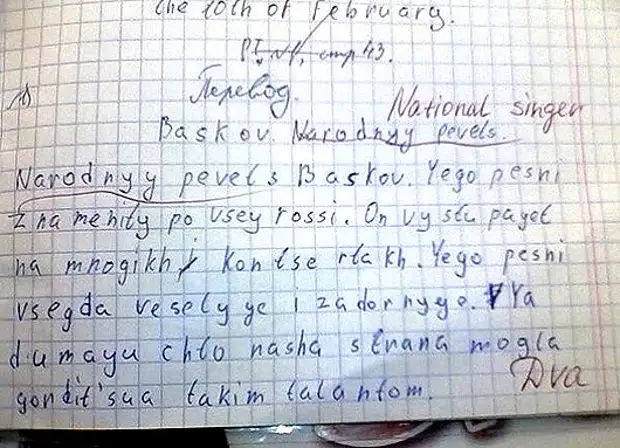 the 10th of February.
P1, №1, стр 43.
1)
Перевод.
National singer
Baskov. Narodnyy pevets.
Narodnyy pevets Baskov. Yego pesni
znamenity po vsey rossi. On vystupayet
na mnogikh kontsertakh. Yego pesni
vsegda veselyye i zadornyye. Ya
dumayu chto nasha strana mogla
gordit'sua takim talantom.
Dva